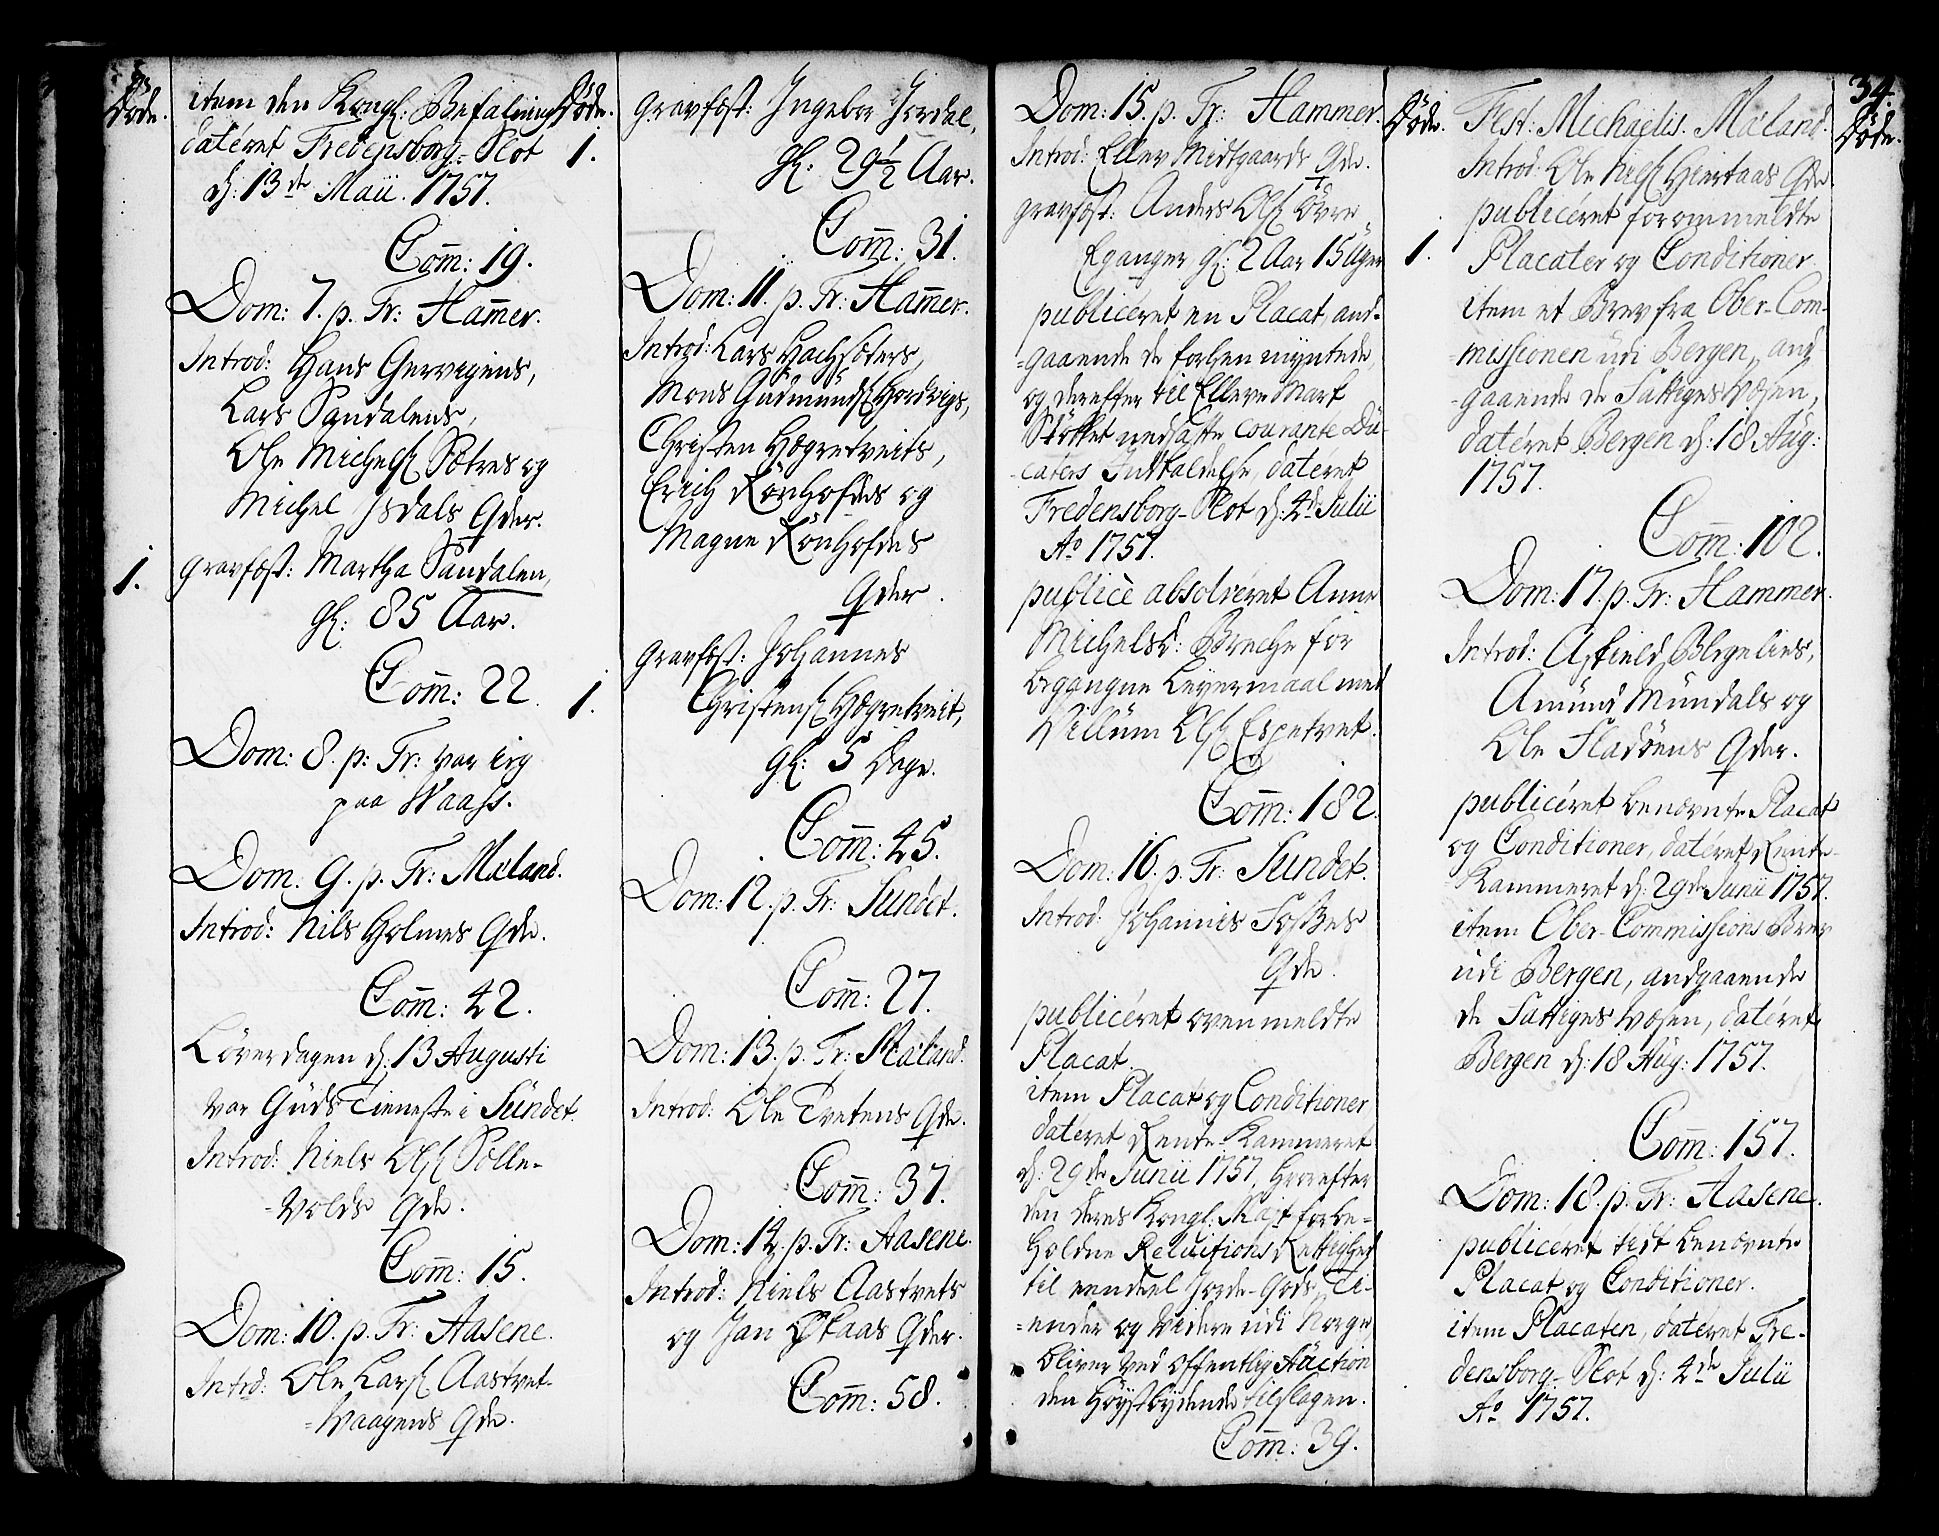 Døde.
item den Kongl: Befalning
datéret Fredensborg-Slot
d: 13de Maii. 1757.
Com̄: 19.
Dom: 7. p. Tr: Ham̄er.
Introd: Hans Gervigens,
Lars Sandalens,
Ole Michels: Sætres og
Michel Isdals Qder.
1.
gravfæst: Martha Sandalen,
gl: 85 Aar.
Com̄: 22.
Dom: 8. p: Tr: var ieg
paa Waass.
Dom: 9. p. Tr: Mæland.
Introd: Nils Holmes Qde.
Com̄: 42.
Löverdagen d: 13 Augusti
var Guds Tieneste i Sundet.
Introd: Niels Ols: Sólle-
-Volds Qde.
Com̄: 15.
Dom: 10. p. Tr: Aasene.
Introd: Ole Lars: Aastvet-
-Vaagens Qde.
Døde.
1.
gravfæst: Ingebor Jordal,
gl: 29½ Aar.
Com̄: 31.
Dom: 11. p. Tr: Ham̄er.
Introd: Lars
Mons Gudmunds: Hordvigs,
Christen Hægretveits,
Erich Rönhofdes og
Magne Rönhofdes
Qder.
1.
gravfæst: Johannes
Christens: Hægretveit,
gl: 5 Dage.
Com̄: 45.
Dom: 12. p. Tr: Sundet.
Com̄: 27.
Dom: 13. p. Tr: Mæland.
Introd: Ole Tvetens Qde.
Com̄: 37.
Dom: 14. p. Tr: Aasene.
Introd: Niels Aastvets
og Jan Qder.
Com̄: 58.
Dom: 15. p. Tr: Hammer.
Introd: Ellev Midtgaards Qde.
gravfæst: Anders Ols: övre
Eganger gl: 2 Aar 15 Uger
publicéret en Placat, and-
-gaaende de forhen myntede,
og derefter til Elleve Mark
Stÿkket nedsatte courante Du-
-caters Indkaldelse, datéret
Fredensborg-Slot d: 4de Julii
Ao 1757.
publicè absolvéret Anne
Michelsd: Breche for
begangne Leyermaal med
Villum Ols: Espetvet.
Com̄: 182.
Dom: 16. p. Tr: Sundet.
Introd: Johannes Fosses
Qde.
publicéret ovenmeldte
Placat.
item Placat og Conditioner
datéret Rente-Kammeret
d: 29de Junii 1757, hvorefter
den Deres Kongl: Majt forbe-
holdne Reluitions Rettighed
til eendeel Jorde-Gods, Ti-
-ender og Videre udi Norge
bliver ved offentlig Auction
den Höystbydende tilslagen.
Com̄: 39.
Døde.
1.
Fest: Michaelis. Mæland.
Introd: Ole Nils: Hiortaas Qde.
publicéret forommeldte
Placater og Conditioner
item et Brev fra Ober-Com-
-missionen udi Bergen, and-
-gaaende de Fattiges Væsen,
datéret Bergen d: 18 Aug:
1757.
Com̄: 102.
Dom: 17. p. Tr: Hammer.
Introd: Asfield Blegeliens,
Amund Mundals og
Ole Fladöens Qder.
publicéret benævnte Placat
og Conditioner, datéret Rente-
-Kammeret d: 29de Junii 1757.
item Ober-Commissions Brev
udi Bergen, andgaaende
de Fattiges Væsen, datéret
Bergen d: 18 Aug: 1757.
Com̄: 157.
Dom: 18. p. Tr: Aasene.
publicéret tidt benævnte
Placat og Conditioner.
item Placaten, datéret Fre-
densborg-Slot d: 4de Julii
Ao 1757.
34.
Døde.